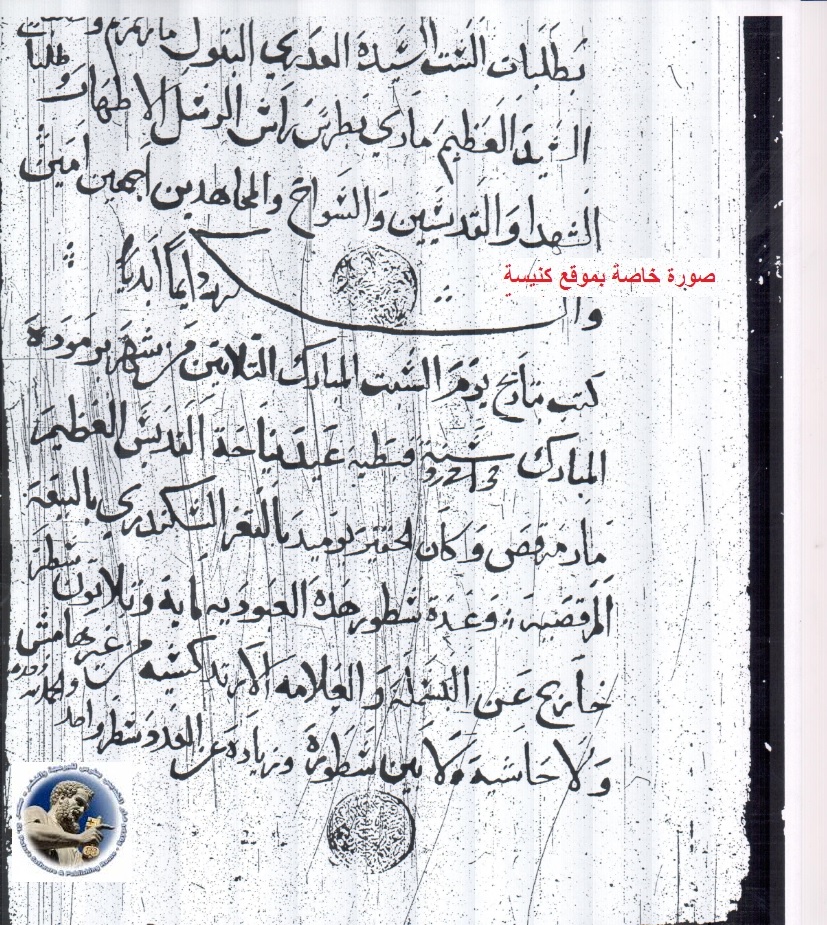 بطلبات الست السيدة العدري البتول مارتمريم وطلبات
السيد العظيم ماري بطرس راس الرسل الاطهار و
الشهدا والقديسين والسواح والمجاهدين اجمعين امين
صورة خاصة بموقع كنيسة
دايماً ابدياً
كتب بتاريخ يوم السبت المبارك التلاتين من شهر برمودة
المبارك سنة قبطيه عيد نياحة القديس العظيم
مار مرقص وكان الحقير يوميد بالتغر السكندري بالبيعة
المرقصية وعدة سطور هده العبوديه ماية وتلاتون سطر
خارج عن البسملة والعلامه الارتدكسيه من غير هامش
ولا حاشية ولا بين سطوره وزيادة عن العدد سطر واحد